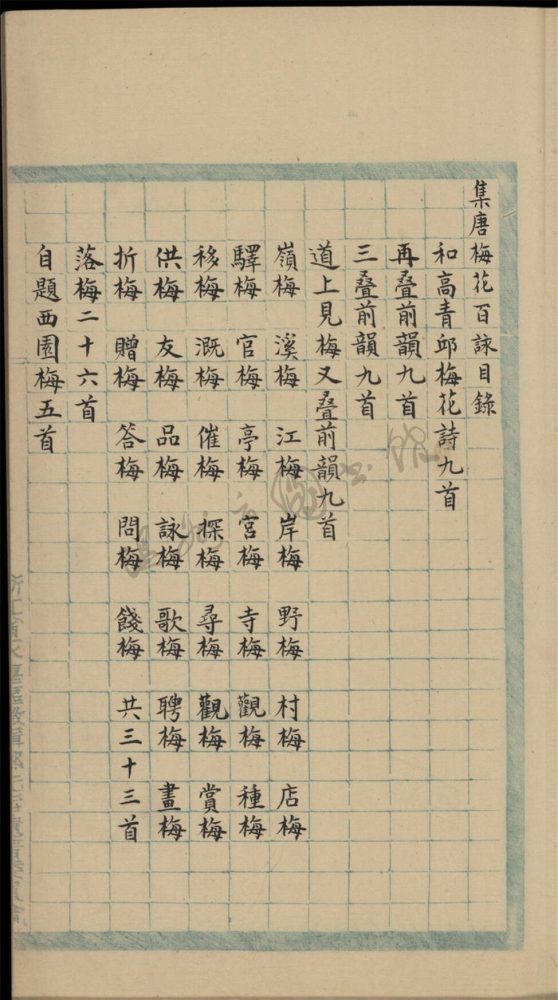 集唐梅花百詠目錄
和高青邱梅花詩九首
再叠前韻九首
三叠前韻九首
道上見梅又叠前韻九首
嶺梅 溪梅 江梅 岸梅 野梅 村梅 店梅
驛梅 官梅 亭梅 宮梅 寺梅 觀梅 種梅
移梅 溉梅 催梅 探梅 尋梅 觀梅 賞梅
供梅 友梅 品梅 詠梅 歌梅 聘梅 畫梅
折梅 贈梅 答梅 問梅 餞梅 共三十三首
落梅二十六首
自題西園梅五首